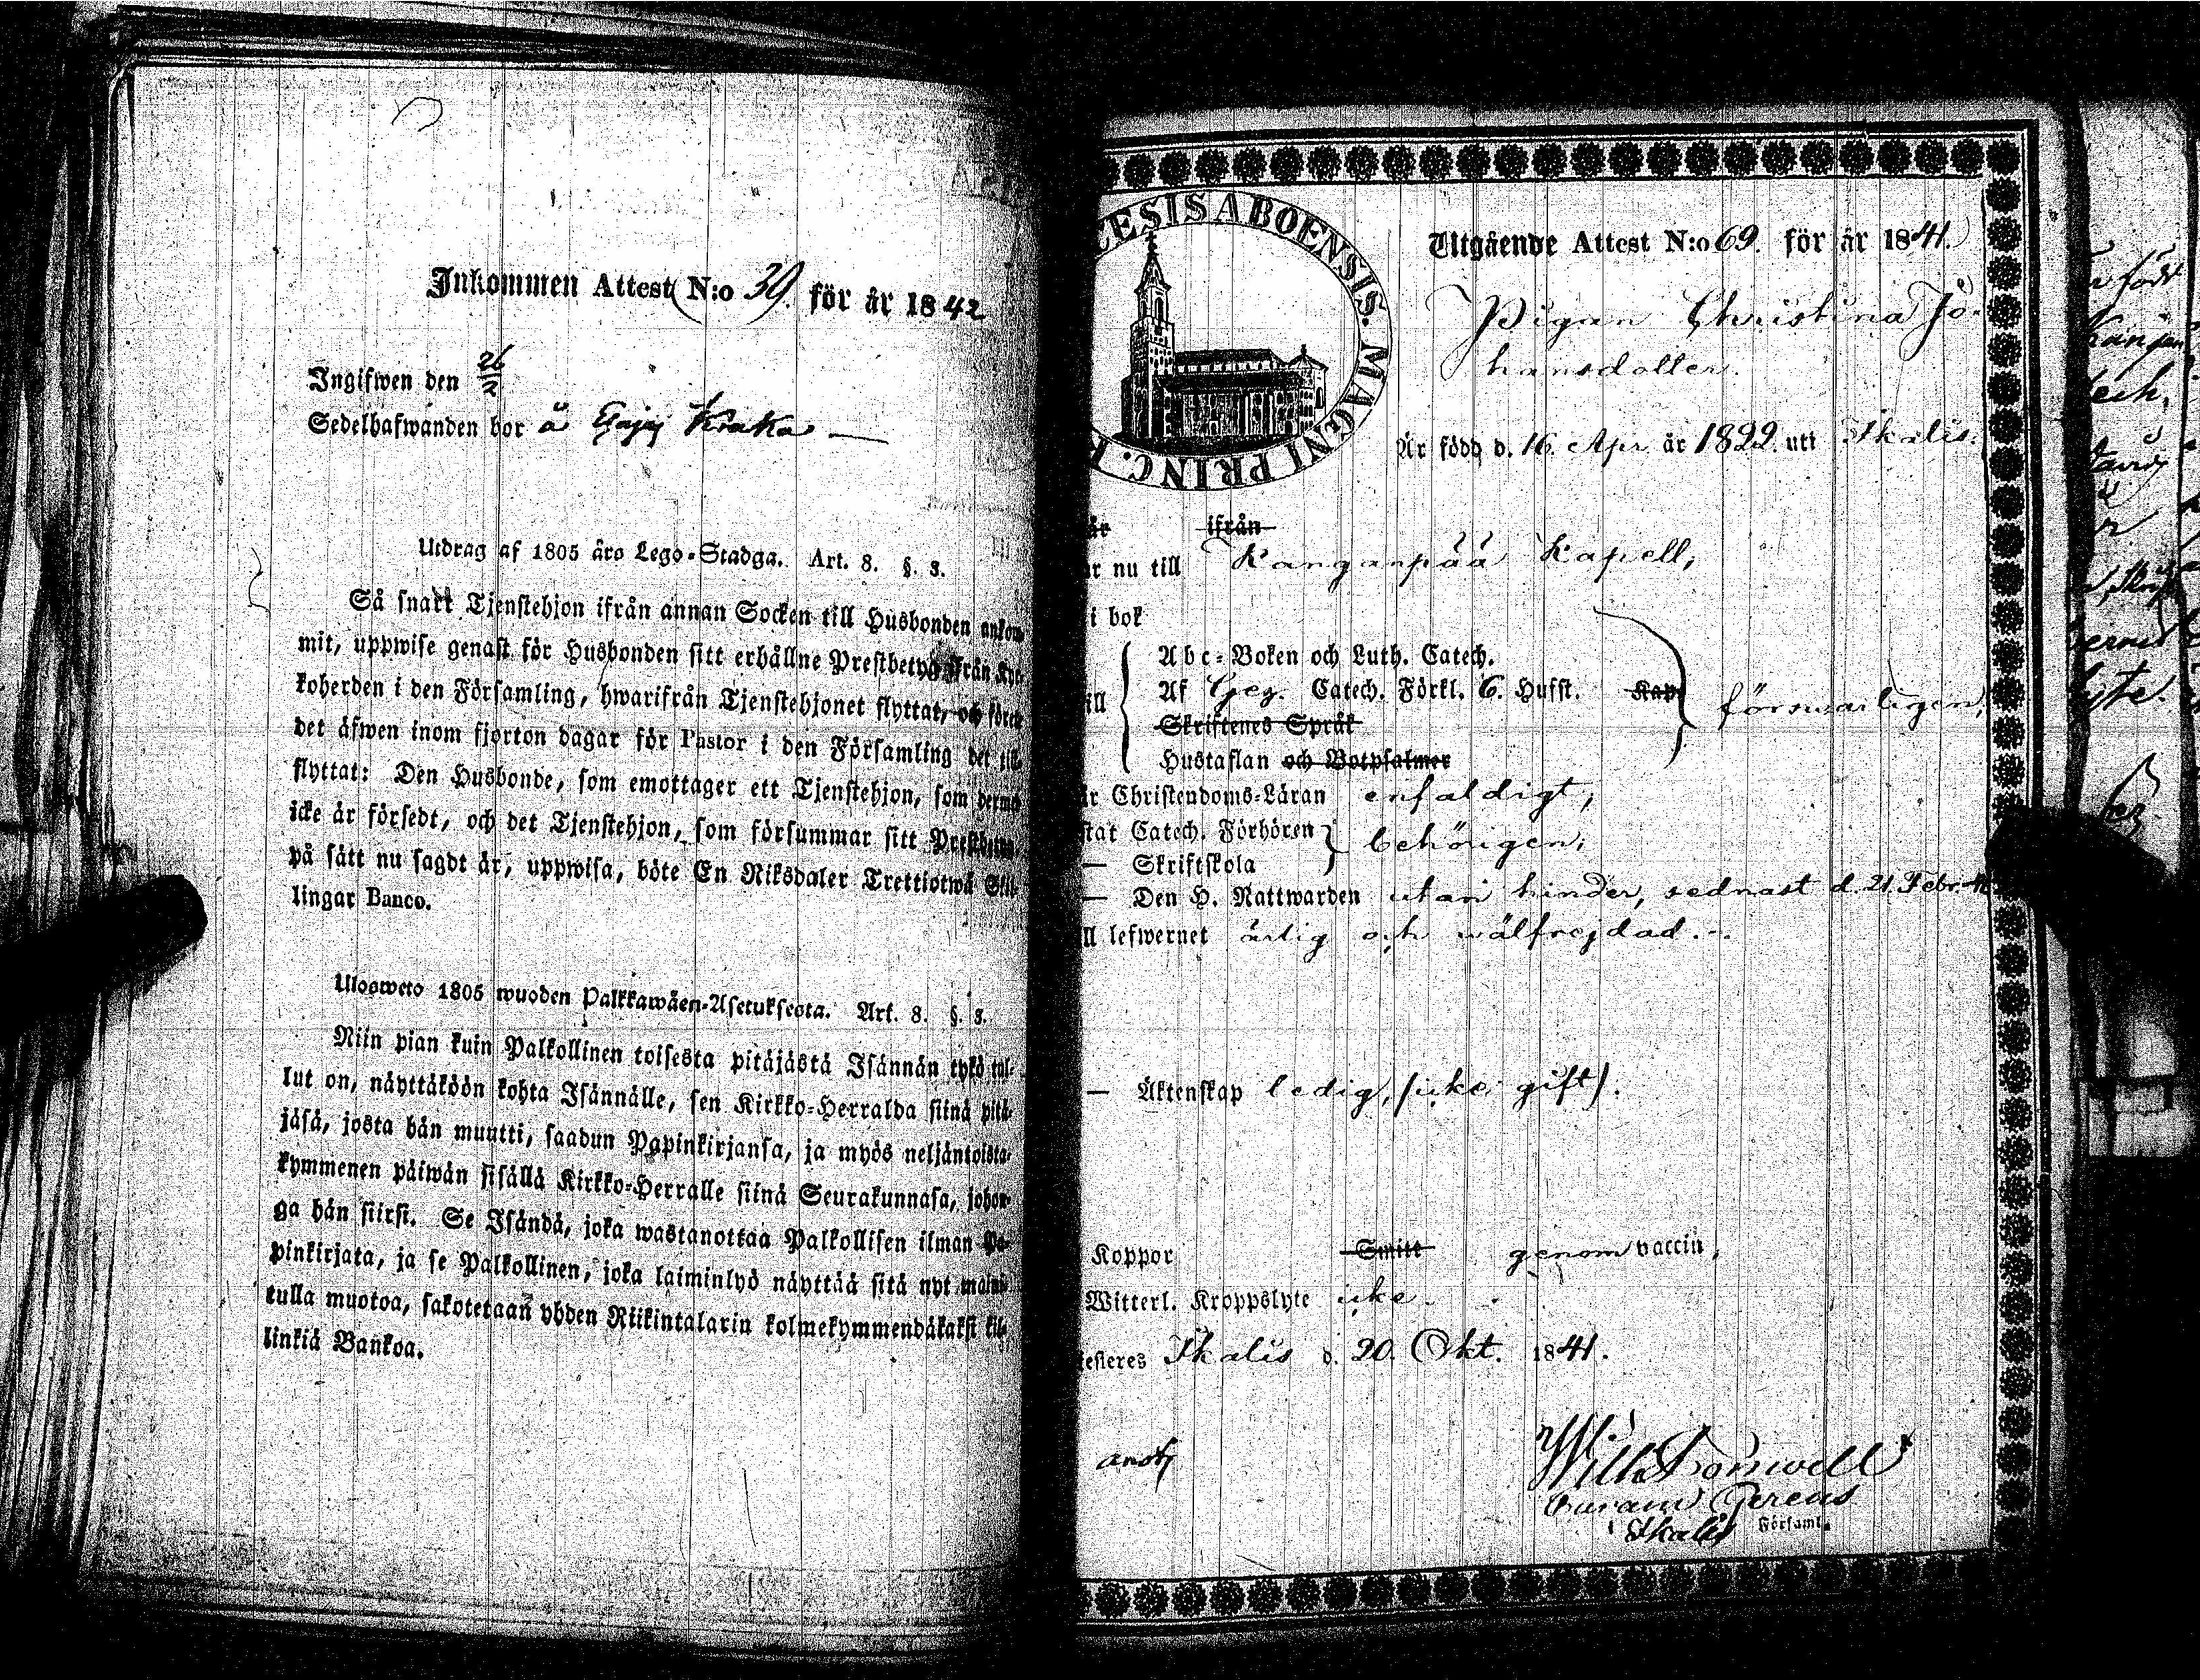 Inkommen Attest N:o 39. för år 1842
Ingifwen den 26/2
Sedelhafwanden bor å Kraka
Utdrag af 1805 års Lego-Stadga. Art. 8. §. 3.
Så snart Tjenstehjon ifrån annan Socken till Husbonden ankom-
mit, uppwise genast för Husbonden sitt erhållne Prestbetyg ifrån Kyr-
koherden i den Församling, hwarifrån Tjenstehjonet flyttat, och förete
det äfwen inom fjorton dagar för Pastor i den Församling det till-
flyttat: Den Husbonde, som emottager ett Tjenstehjon, som dermed
icke är försedt, och det Tjenstehjon, som försummar sitt Prestbetyg,
på sätt nu sagdt är, uppwisa, böte En Riksdaler Trettiotwå Skil-
lingar Banco.
Ulosweto 1805 wuoden Palkkawäen-Asetuksesta. Art. 8. §. 3.
Niin pian kuin Palkollinen toisesta pitäjästä Isännän tykö tul-
lut on, näyttäköön kohta Isännälle, sen Kirkko-Herralda siinä pitä-
jäsä, josta hän muutti, saadun Papinkirjansa, ja myös neljäntoista-
kymmenen päiwän sisällä Kirkko-Herralle siinä Seurakunnasa, johon-
ga hän siirsi. Se Isändä, joka wastanottaa Palkollisen ilman Pa-
pinkirjata, ja se Palkollinen, joka laiminlyö näyttää sitä nyt maini-
tulla muotoa, sakotetaan yhden Riikintalarin kolmekymmendäkaksi kil-
linkiä Bankoa.
ESIS ABOENSIS. MAGNI PRINC.
Utgående Attest N:o 69. för år 1841.
Pigan Christina Jo-
hansdotter.
Är född d. 16. Apr år 1822. uti Ikalis.
är ifrån
nu till Kanganpää Kapell,
i bok
Abc-Boken och Luth. Catech.
ill Af Catech. Förkl. 6. Hufst. Kap försvarligen,
Skriftenes Språk
Hustaflan och Botpsalmer
Christendoms-Läran enfaldigt,
stat Catech. Förhören
behörigen,
— Skriftskola
— Den H. Nattwarden utan hinder, sednast d. 21. Febr.
ll lefwernet ärlig och wälfrejdad.
— Äktenskap ledig, (icke gift).
Koppor Smitt genom vaccin,
Witterl. Kroppslyte icke.
testeres Ikalis d. 20. Okt. 1841.
Curam Gerens
Ikalis Församl.